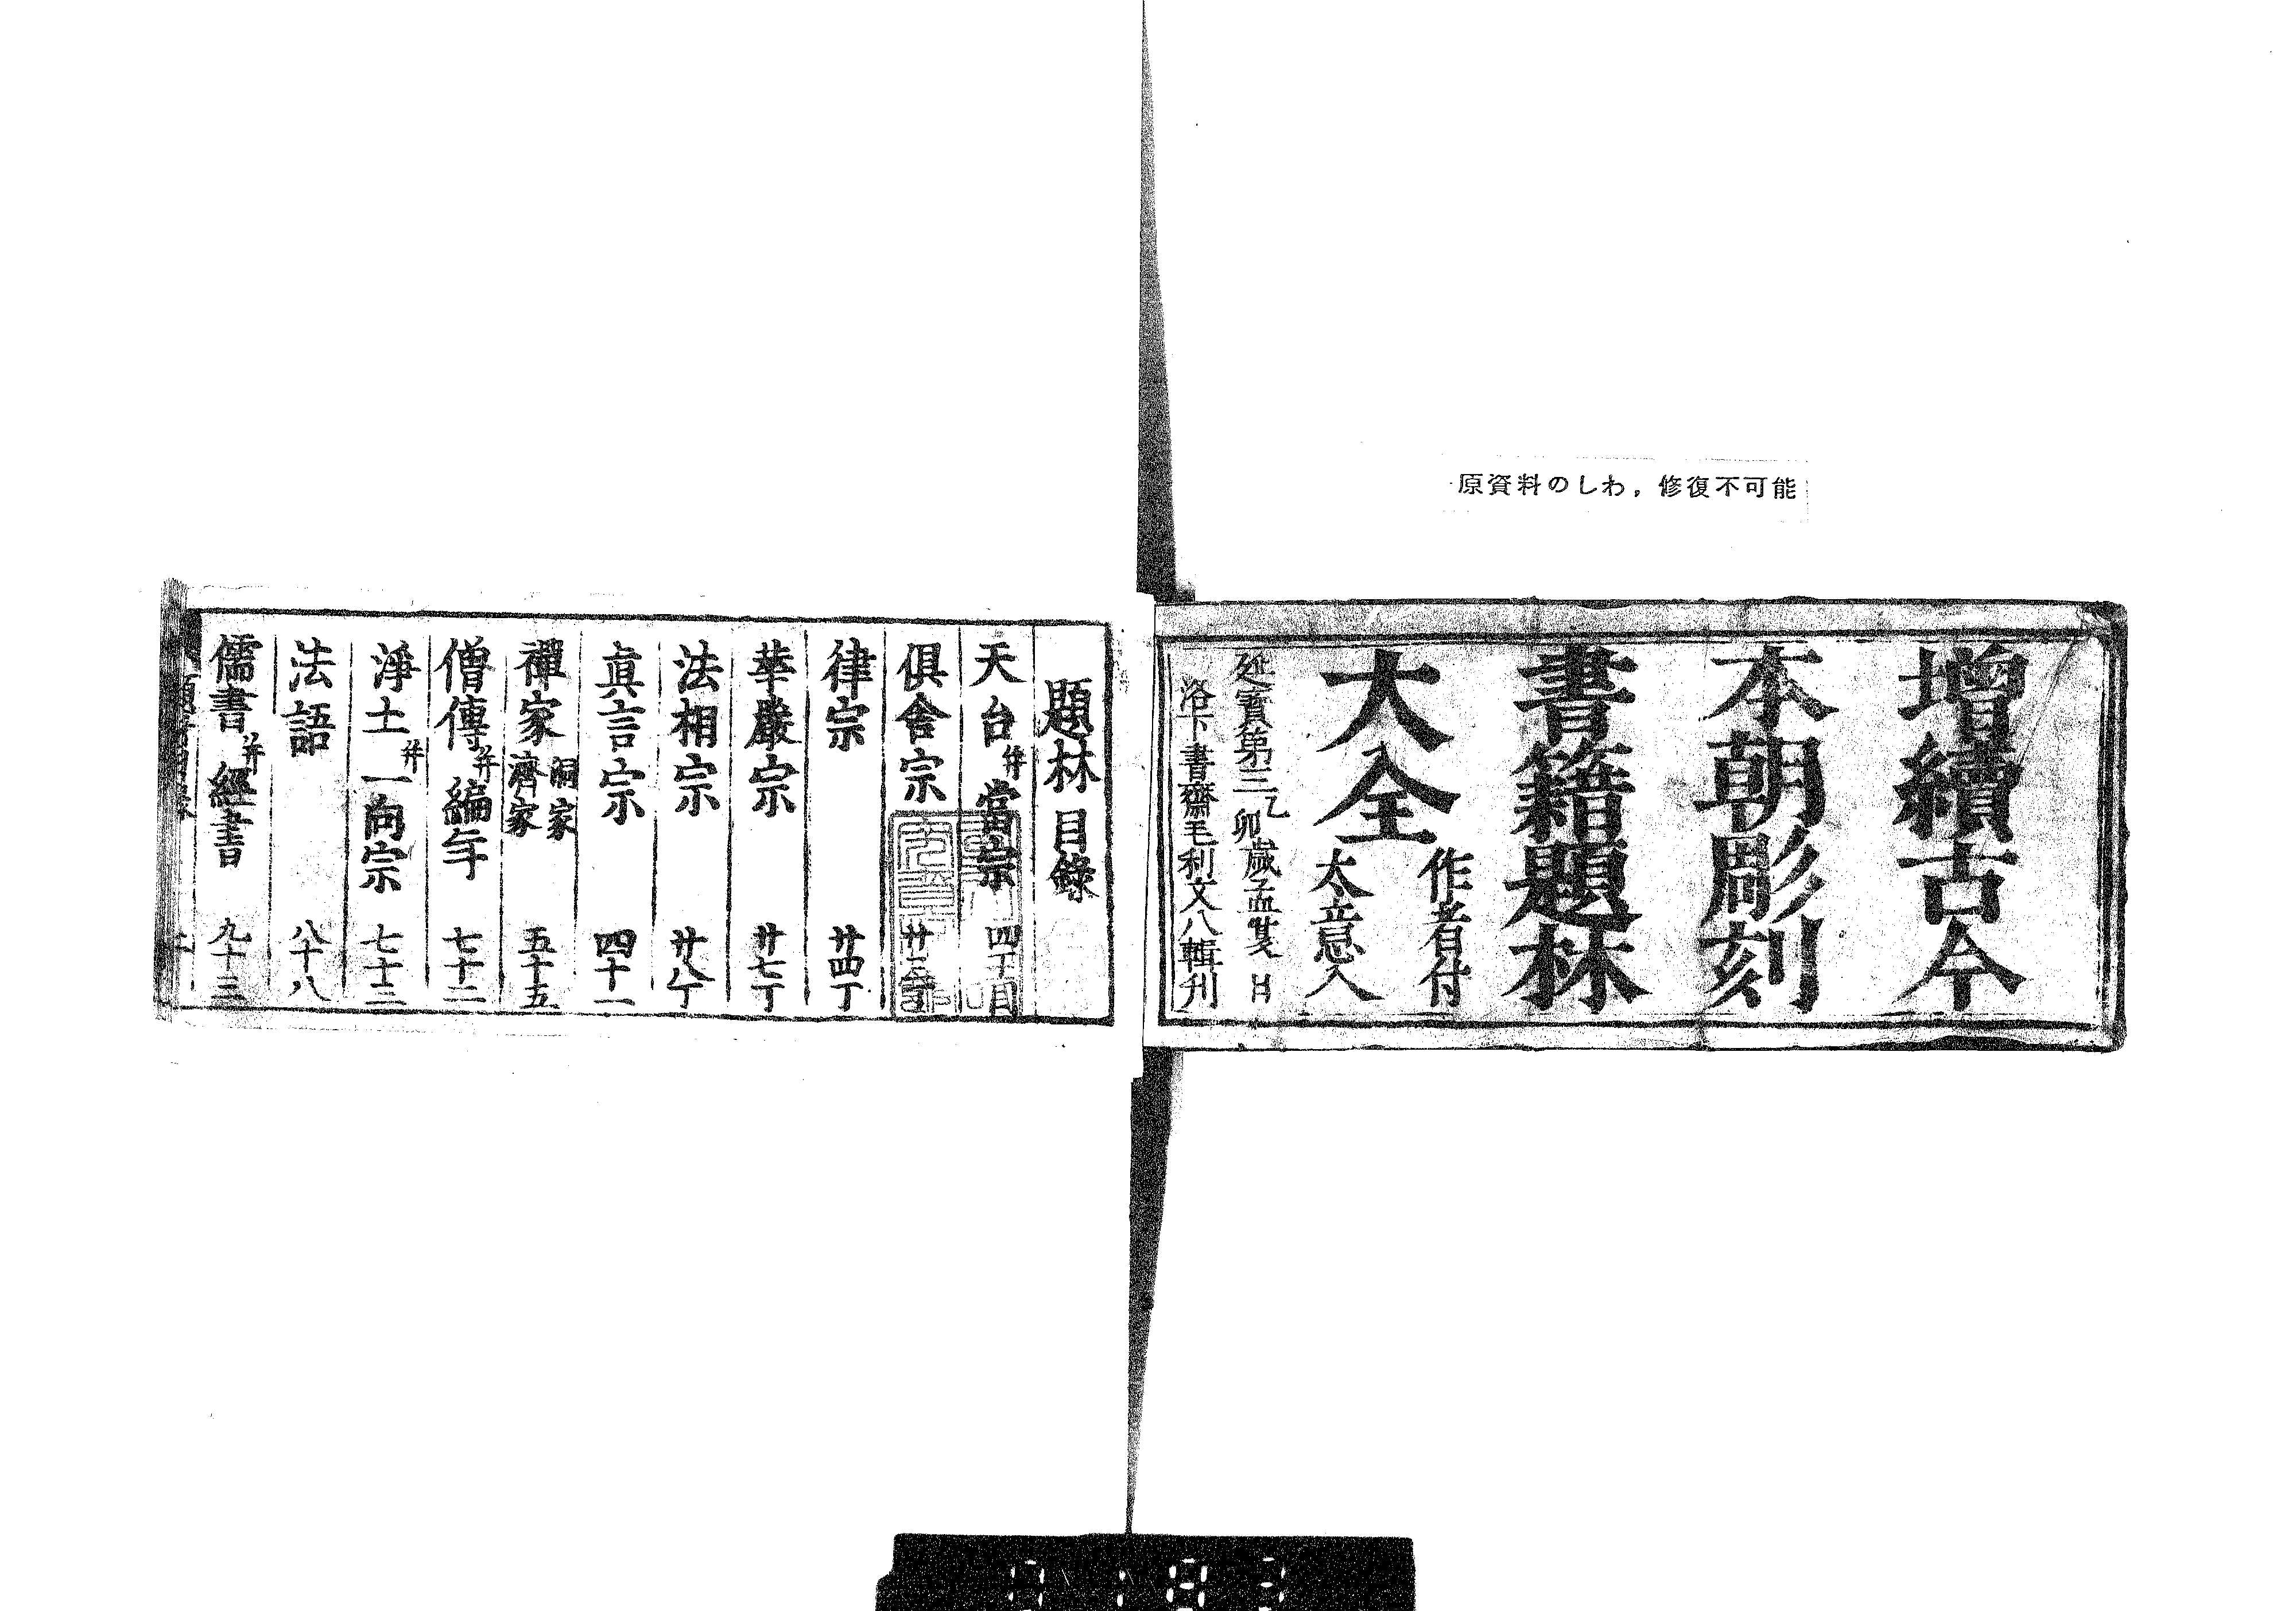 原資料のしわ，修復不可能
増續古今
本朝彫刻
書籍題林
大全
作者付
太意入
延寳第三乙卯歳孟
洛下書齋毛利文八輯刋
題林目録
天台并當宗 四丁目
俱舍宗 廿
律宗 廿四丁
華嚴宗 廿七丁
法相宗 廿八丁
眞言宗 四十一
禪家 洞家 濟家 五十五
僧傳并編年 七十二
淨土并一向宗 七十三
法語 八十八
儒書并經書 九十三